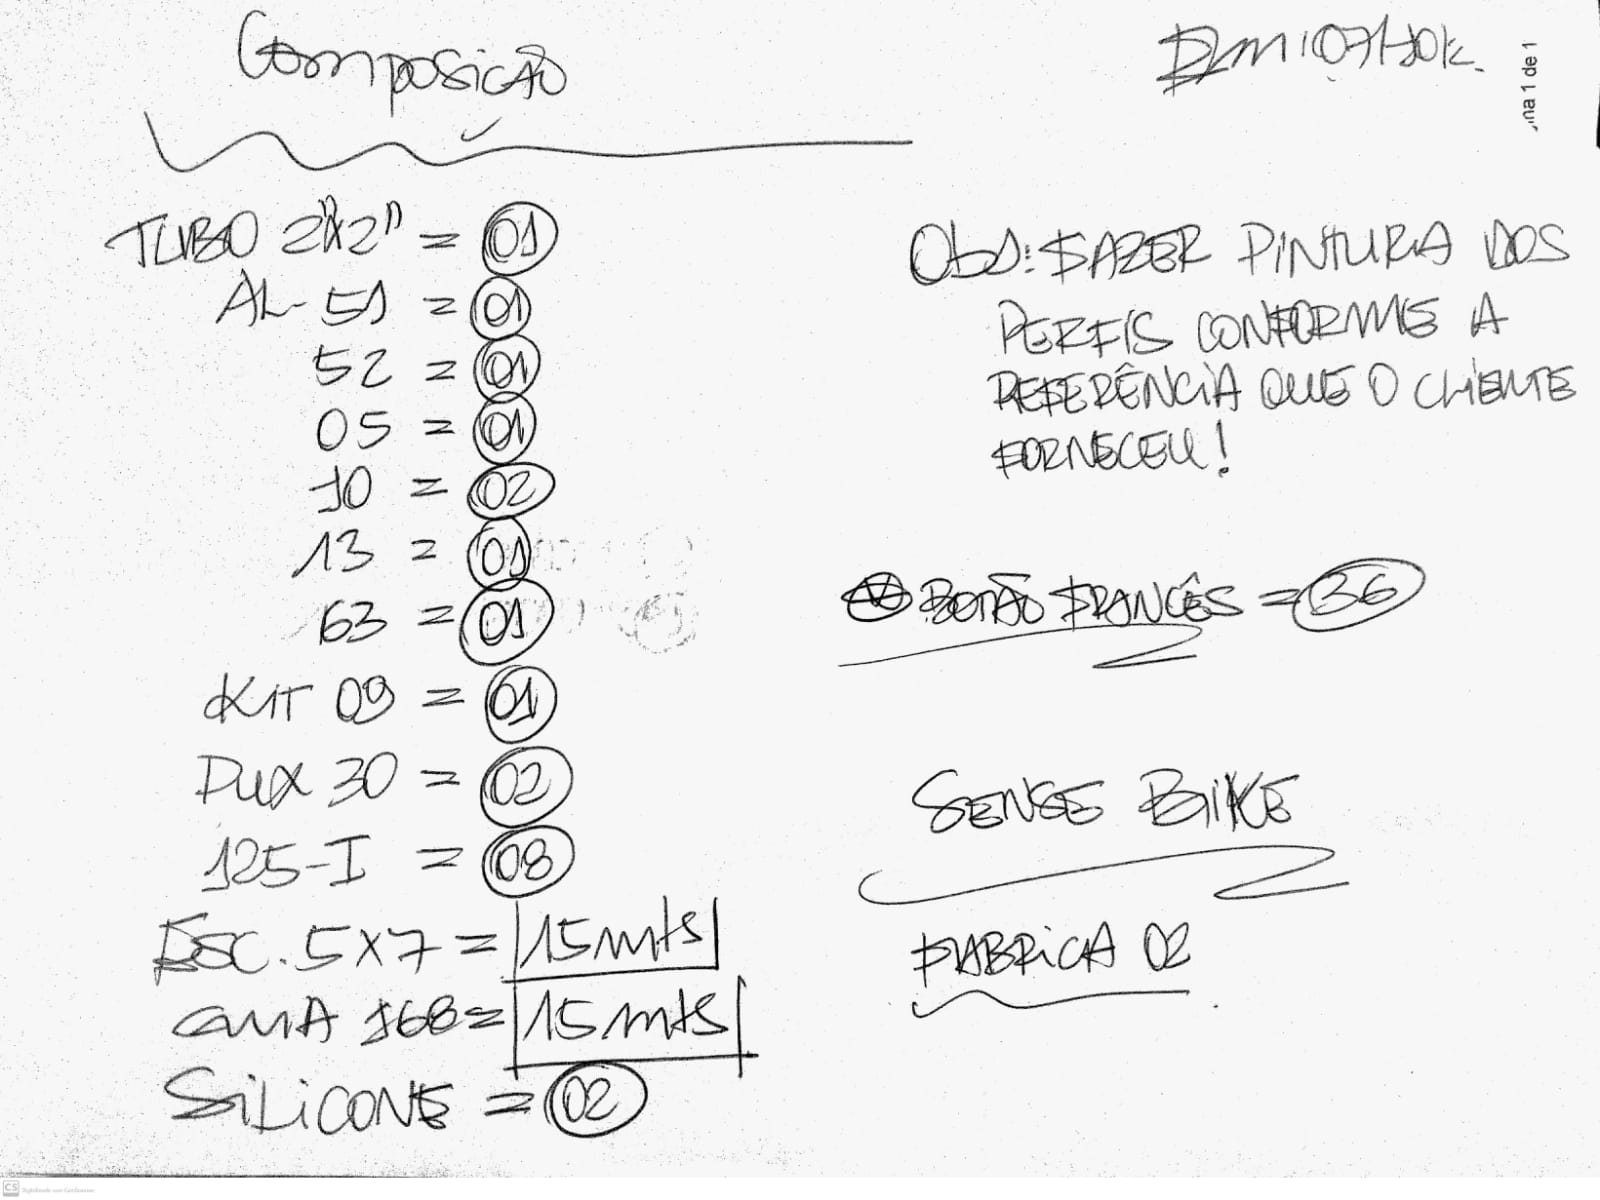 Composição
TUBO 2"x2" = 01
AL-51 = 01
52 = 01
05 = 01
10 = 02
13 = 01
63 = 01
KIT 09 = 01
Pux 30 = 02
125-I = 08
ESC. 5x7 = 15mts
168 = 15mts
SILICONE = 02
na 1 de 1
Obs: FAZER PINTURA DOS
PERFIS CONFORME A
REFERÊNCIA QUE O CLIENTE
FORNECEU!
BOTÃO FRANCÊS = 36
SENSE BIKE
FABRICA 02
CS Digitalizado com CamScanner